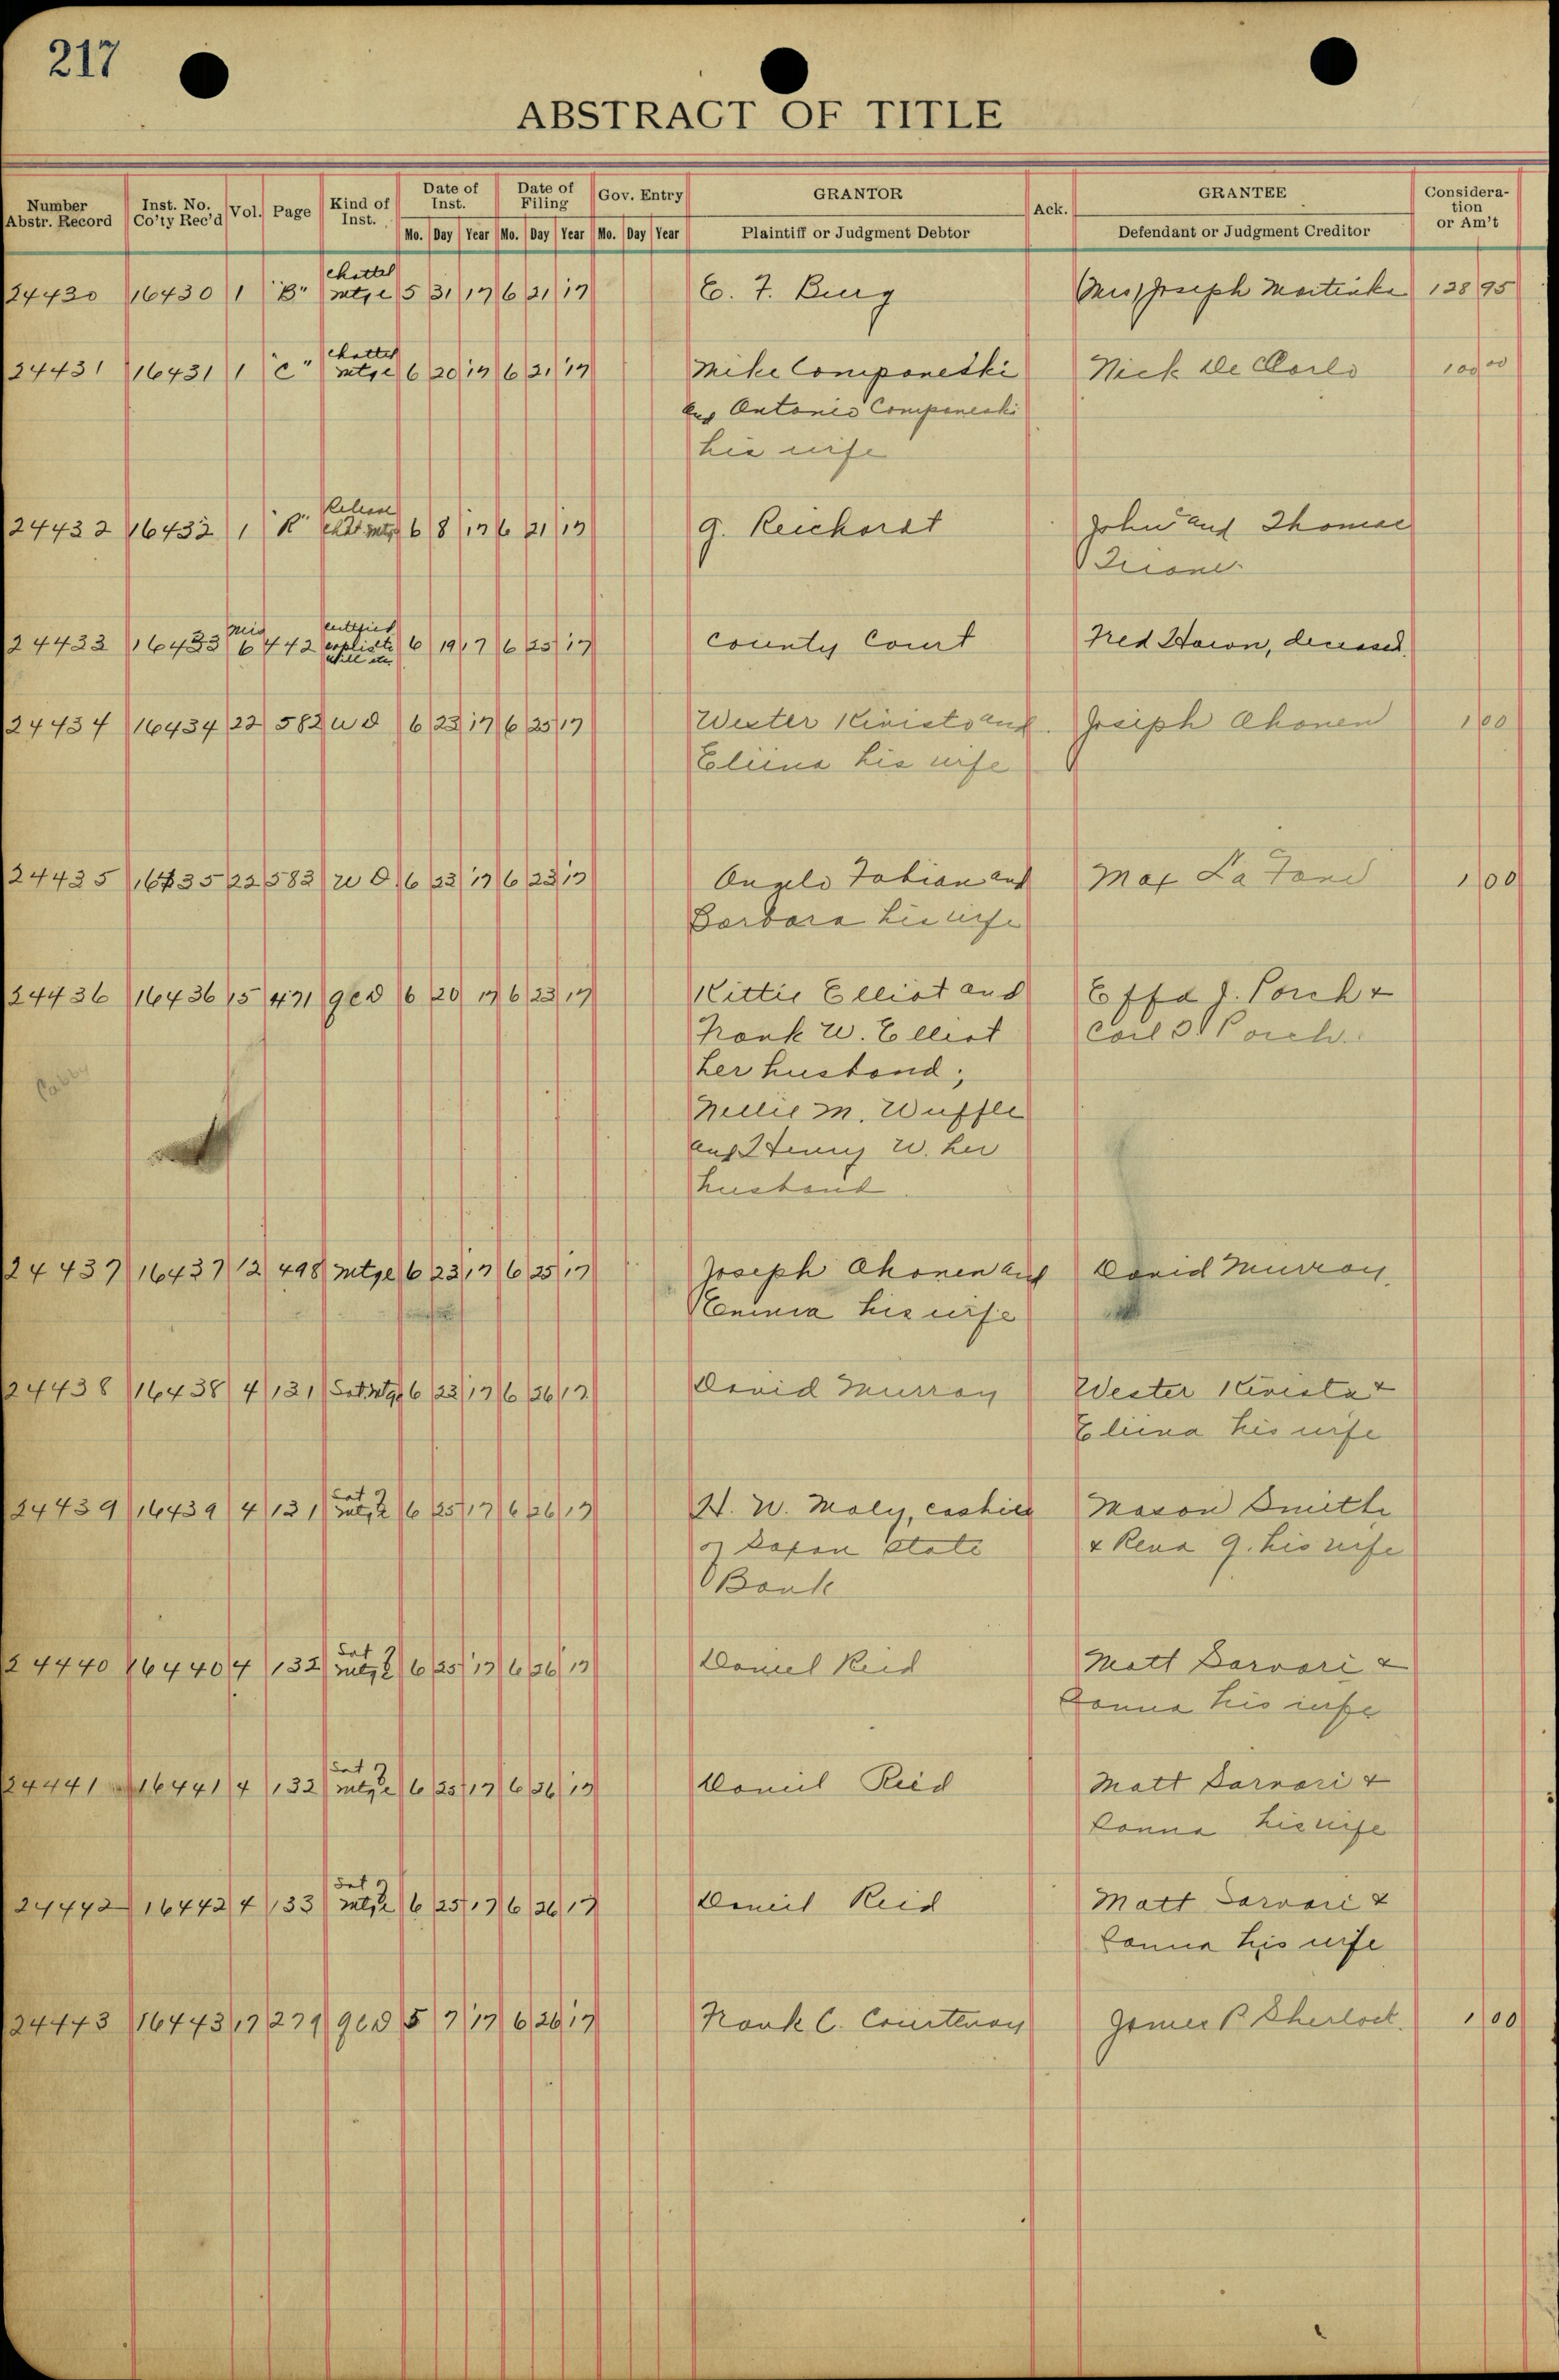 217
ABSTRACT OF TITLE
Number Abstr. Record | Inst. No. Co'ty Rec'd | Vol. | Page | Kind of Inst. | Date of Inst. Mo. Day Year | Date of Filing Mo. Day Year | Gov. Entry Mo. Day Year | GRANTOR Plaintiff or Judgment Debtor | Ack. | GRANTEE Defendant or Judgment Creditor | Consideration or Am't
chattel
24430 16430 1 "B" mtge 5 31 17 6 21 17 E. F. Burg (Mrs) Joseph 138 95
chattel
24431 16431 1 "C" mtge 6 20 17 6 21 17 Mike Componeski Nick De Carlo 100 00
and Antonio Componeski
his wife
Release
24432 16432 1 "R" chat mtg 6 8 17 6 21 17 G. Reichordt John and Thomas
mis certified
24433 16433 6 442 6 19 17 6 25 17 County Court Fred, deceased.
will etc
24434 16434 22 582 W D 6 23 17 6 25 17 Wester Kivisto and Joseph Ahonen 1 00
Eliina his wife
24435 16435 22 583 W D 6 23 17 6 23 17 Angelo Fabian and Max La Fond 1 00
Barbara his wife
24436 16436 15 471 QCD 6 20 17 6 23 17 Kittie Elliot and Effa J. Porch &
Frank W. Elliot Carl Porch.
her husband;
Cabby
Nellie M. Wuffle
and Henry W. her
husband
24437 16437 12 498 mtge 6 23 17 6 25 17 Joseph Ahonen and David Murray
his wife
24438 16438 4 131 Sat mtge 6 23 17 6 26 17 David Murray Wester Kivisto &
Eliina his wife
Sat
24439 16439 4 131 mtge 6 25 17 6 26 17 H. W. Maly, cashier Mason Smith
of Saxon State & Rena G. his wife
Bank
Sat
24440 16440 4 132 mtge 6 25 17 6 26 17 Daniel Reid Matt Sarvari &
Sanna his wife
Sat
24441 16441 4 132 mtge 6 25 17 6 26 17 Daniel Reid Matt Sarvari &
Sanna his wife
Sat
24442 16442 4 133 mtge 6 25 17 6 26 17 Daniel Reid Matt Sarvari &
Sanna his wife
24443 16443 17 279 QCD 5 7 17 6 26 17 Frank C. Courtenay James R Sherlock. 1 00